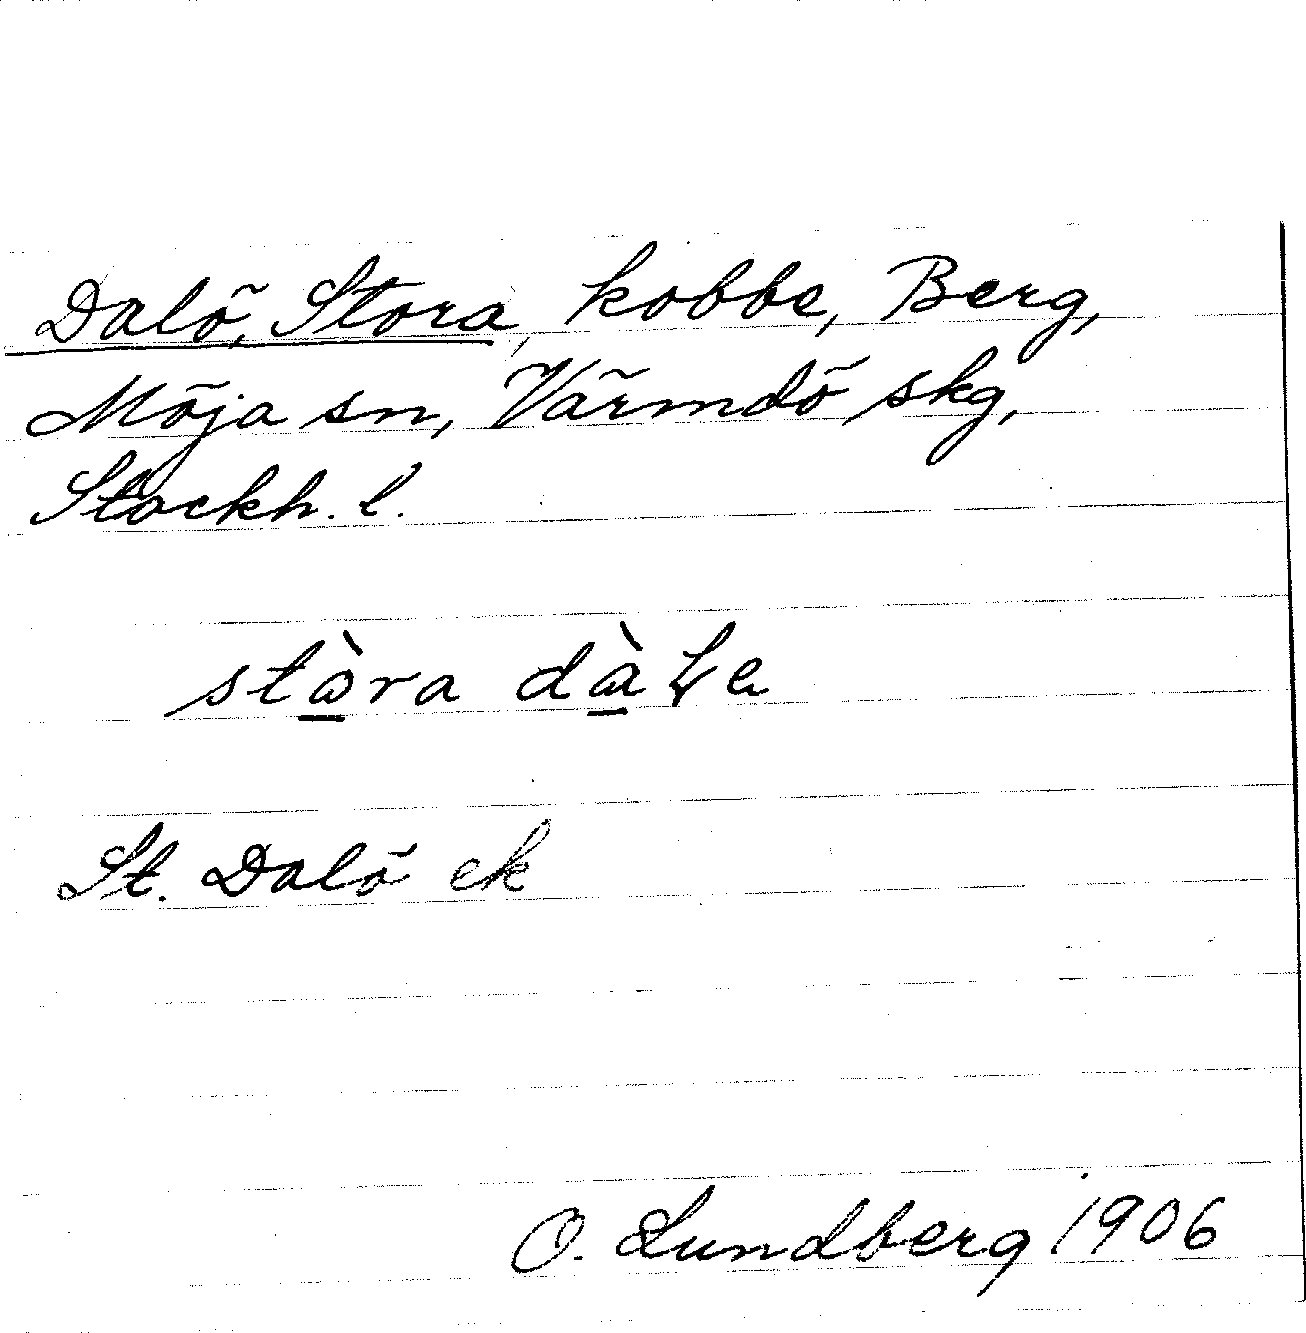 Dalö, Stora, kobbe, Berg,
Möja sn, Värmdö skg,
Stockh. l.
stora
St. Dalö ek
O. Lundberg 1906